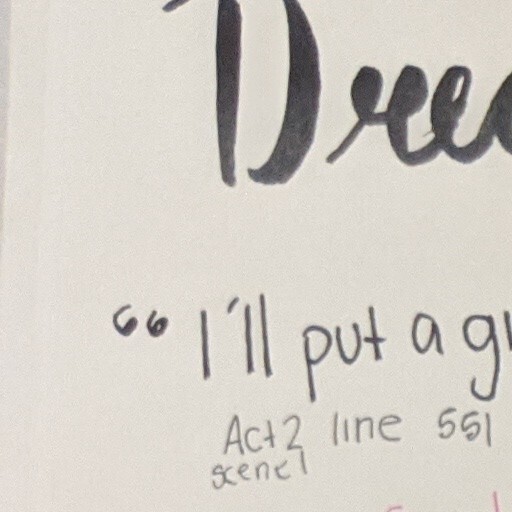 Drea
“ I'll put a gi
Act 2 line 551
scene 1